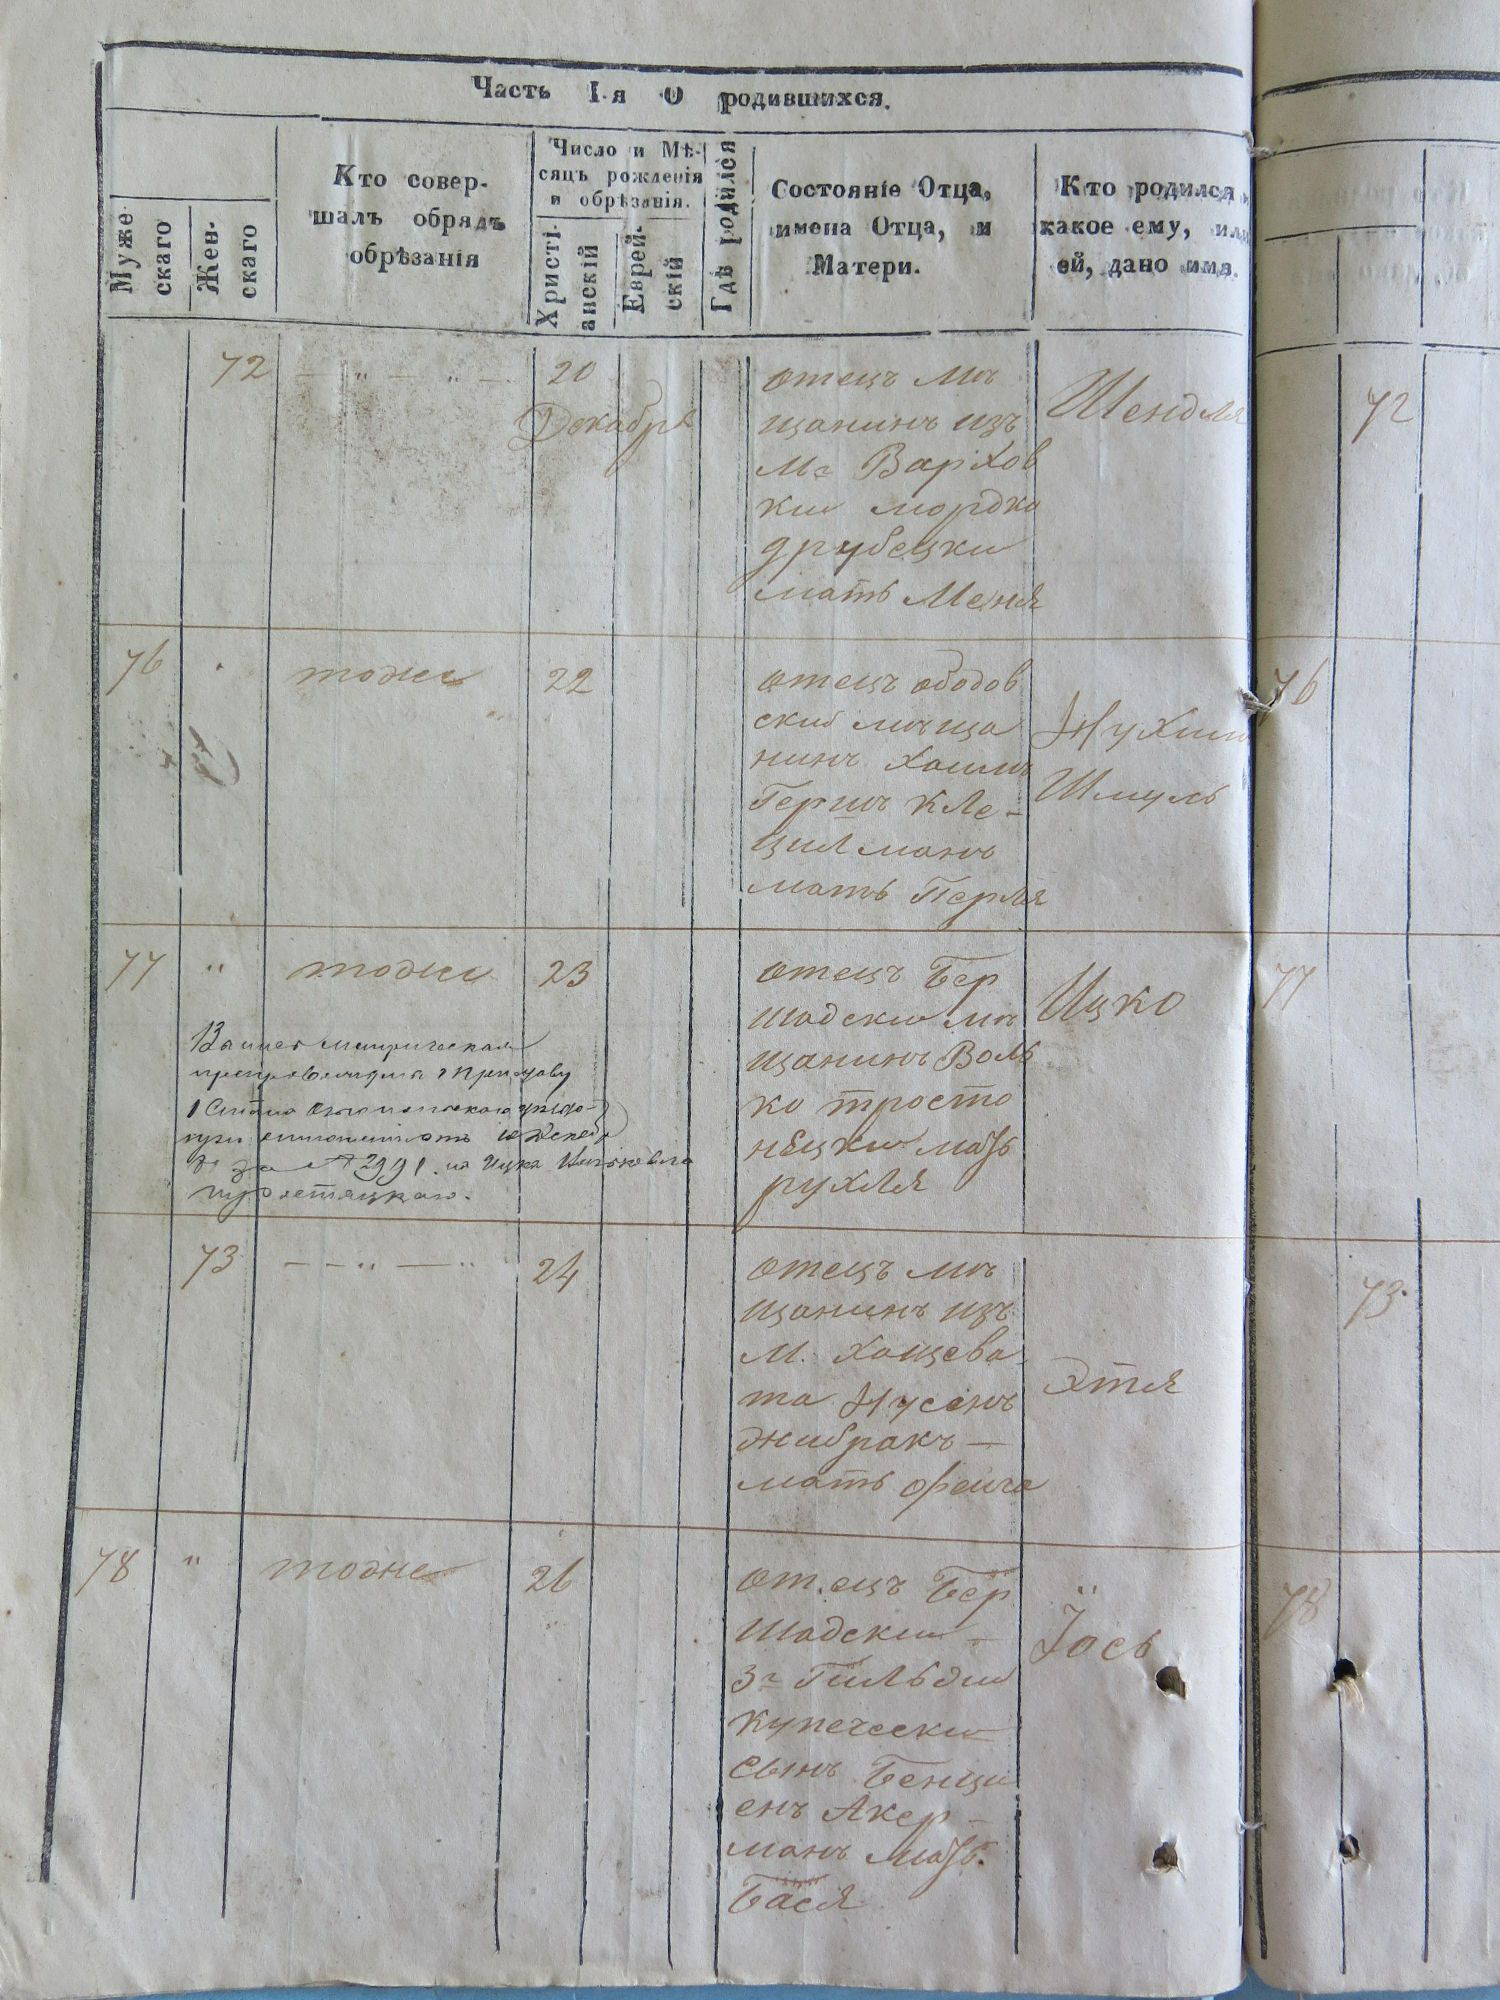 Часть I-я О родившихся.
Муже
скаго
Жен-
скаго
Кто совер-
шалъ обрядъ
обрѣзанія
Число и Мѣ-
сяцъ рожденія
и обрѣзанія.
Христі-
анскій
Еврей-
скій
Гдѣ родился
Состояніе Отца,
имена Отца, и
Матери.
Кто родился,
какое ему, или
ей, дано имя.
72 — „ — „ — 20
Декабря
отецъ мѣ
щанинъ изъ
м. Вархов
ки мордко
друбецки
мать Меня
Шендля
72
76 тоже 22
отецъ ободов
ский мѣща
нинъ Хаимъ
Гершъ Кле-
цилманъ
мать Перля
Нухим
Шмуль
76
77 „ тоже 23
отецъ Бер
шадски мѣ
щанинъ Воль
ко тросто
нецки мать
рухля
Ицко
77
73 — — „ — „ 24
отецъ мѣ
щанинъ изъ
м. Хащева
та Нусенъ
жибракъ —
мать фейга
Этя
73
78 „ тоже 26
отецъ Бер
шадски —
3й Гильдии
купечески
сынъ Бенци
енъ Акер —
манъ мать
Бася
Їось
78